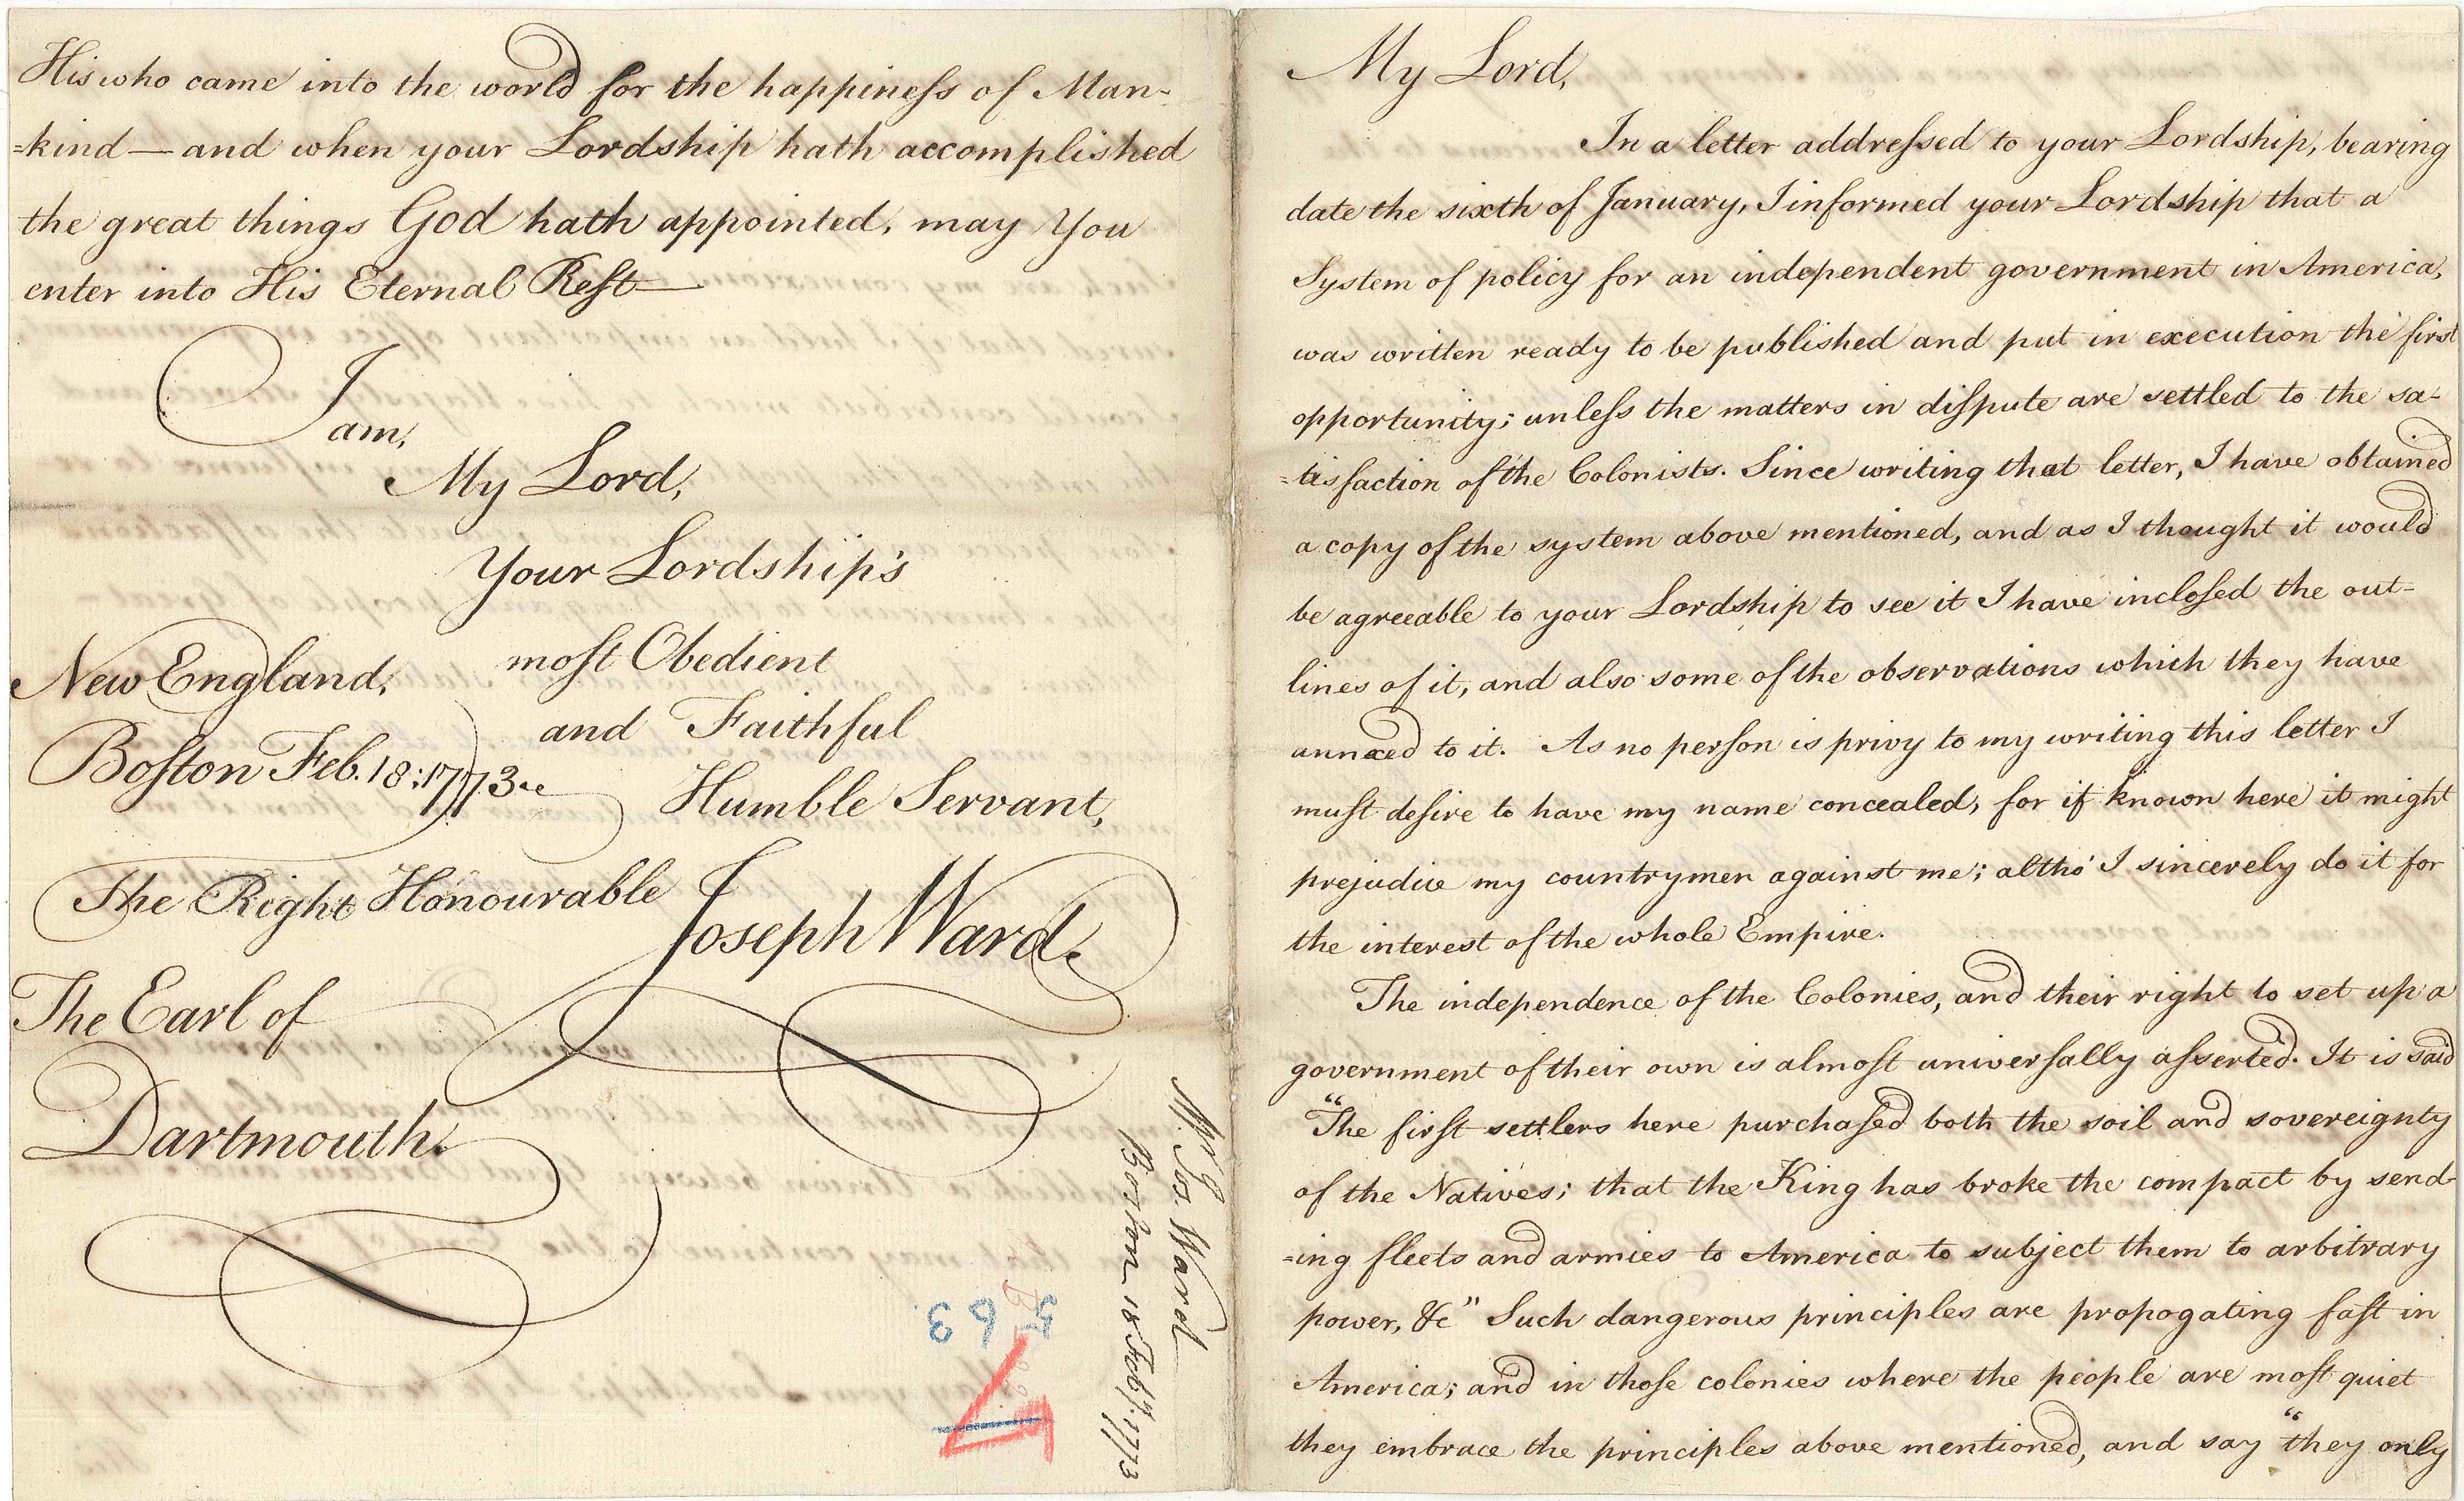 His who came into the world for the happineſs of Man-
=kind — and when your Lordship hath accomplished
the great things God hath appointed, may You
enter into His Eternal Reſt —
I am,
My Lord,
Your Lordship's
moſt Obedient
and Faithful
Humble Servant,
Joseph Ward.
New England,
Boſton Feb. 18: 1773
The Right Honourable
The Earl of
Dartmouth.
Mr. Jos. Ward
Boston 18 Feby. 1773
563
My Lord,
In a letter addreſsed to your Lordship, bearing
date the sixth of January, I informed your Lordship that a
System of policy for an independent government in America,
was written ready to be published and put in execution the first
opportunity; unleſs the matters in diſpute are settled to the sa-
=tisfaction of the Colonists. Since writing that letter, I have obtained
a copy of the system above mentioned, and as I thought it would
be agreeable to your Lordship to see it I have incloſed the out-
lines of it, and also some of the observations which they have
annxed to it. As no perſon is privy to my writing this letter I
muſt deſire to have my name concealed, for if known here it might
prejudice my countrymen against me; altho' I sincerely do it for
the interest of the whole Empire.
The independence of the Colonies, and their right to set up a
government of their own is almoſt univerſally aſserted. It is said
"The firſt settlers here purchaſed both the soil and sovereignty
of the Natives; that the King has broke the compact by send-
=ing fleets and armies to America to subject them to arbitrary
power, &c" Such dangerous principles are propogating faſt in
America; and in thoſe colonies where the people are moſt quiet
they embrace the principles above mentioned, and say "they only